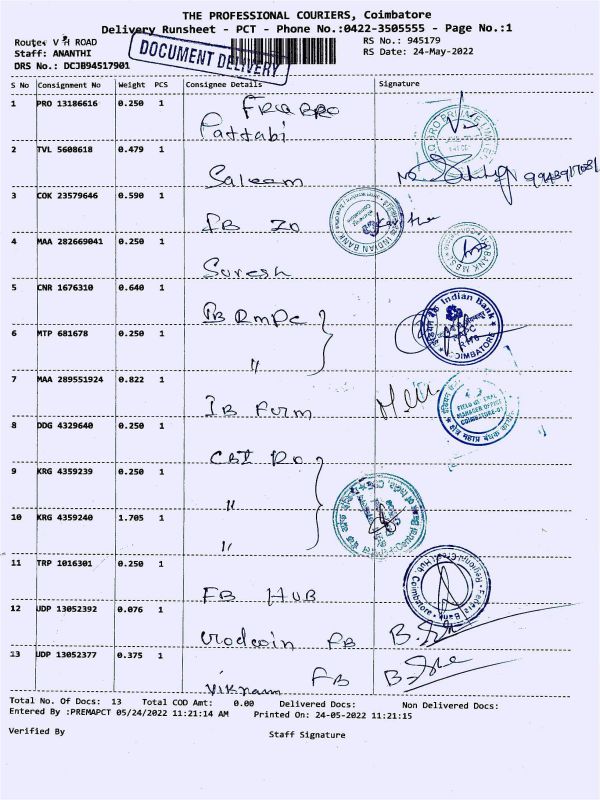 THE PROFESSIONAL COURIERS, Coimbatore
Delivery Runsheet - PCT - Phone No.:0422-3505555 - Page No.:1
Route: V H ROAD
RS No.: 945179
Staff: ANANTHI
RS Date: 24-May-2022
DRS No.: DCJB94517901
DOCUMENT DELIVERY
S No Consignment No Weight PCS Consignee Details Signature
1 PRO 13186616 0.250 1
Pattabi
2 TVL 5608618 0.479 1
Saleem
3 COK 23579646 0.590 1
IB ZO Kavitha
INDIAN BANK
4 MAA 282669041 0.250 1
Suresh
5 CNR 1676310 0.640 1
IB RMPC
Indian Bank
COIMBATORE
6 MTP 681678 0.250 1
"
7 MAA 289551924 0.822 1
IB FGM
FIELD GENERAL
MANAGER OFFICE
COIMBATORE-01
8 DDG 4329640 0.250 1
CBI RO
9 KRG 4359239 0.250 1
"
Central Bank of India
10 KRG 4359240 1.705 1
"
11 TRP 1016301 0.250 1
FB HUB
Federal Bank
Regional Credit Hub, Coimbatore
12 UDP 13052392 0.076 1
FB
13 UDP 13052377 0.375 1
Vikram FB
Total No. Of Docs: 13 Total COD Amt: 0.00 Delivered Docs: Non Delivered Docs:
Entered By :PREMAPCT 05/24/2022 11:21:14 AM Printed On: 24-05-2022 11:21:15
Verified By
Staff Signature